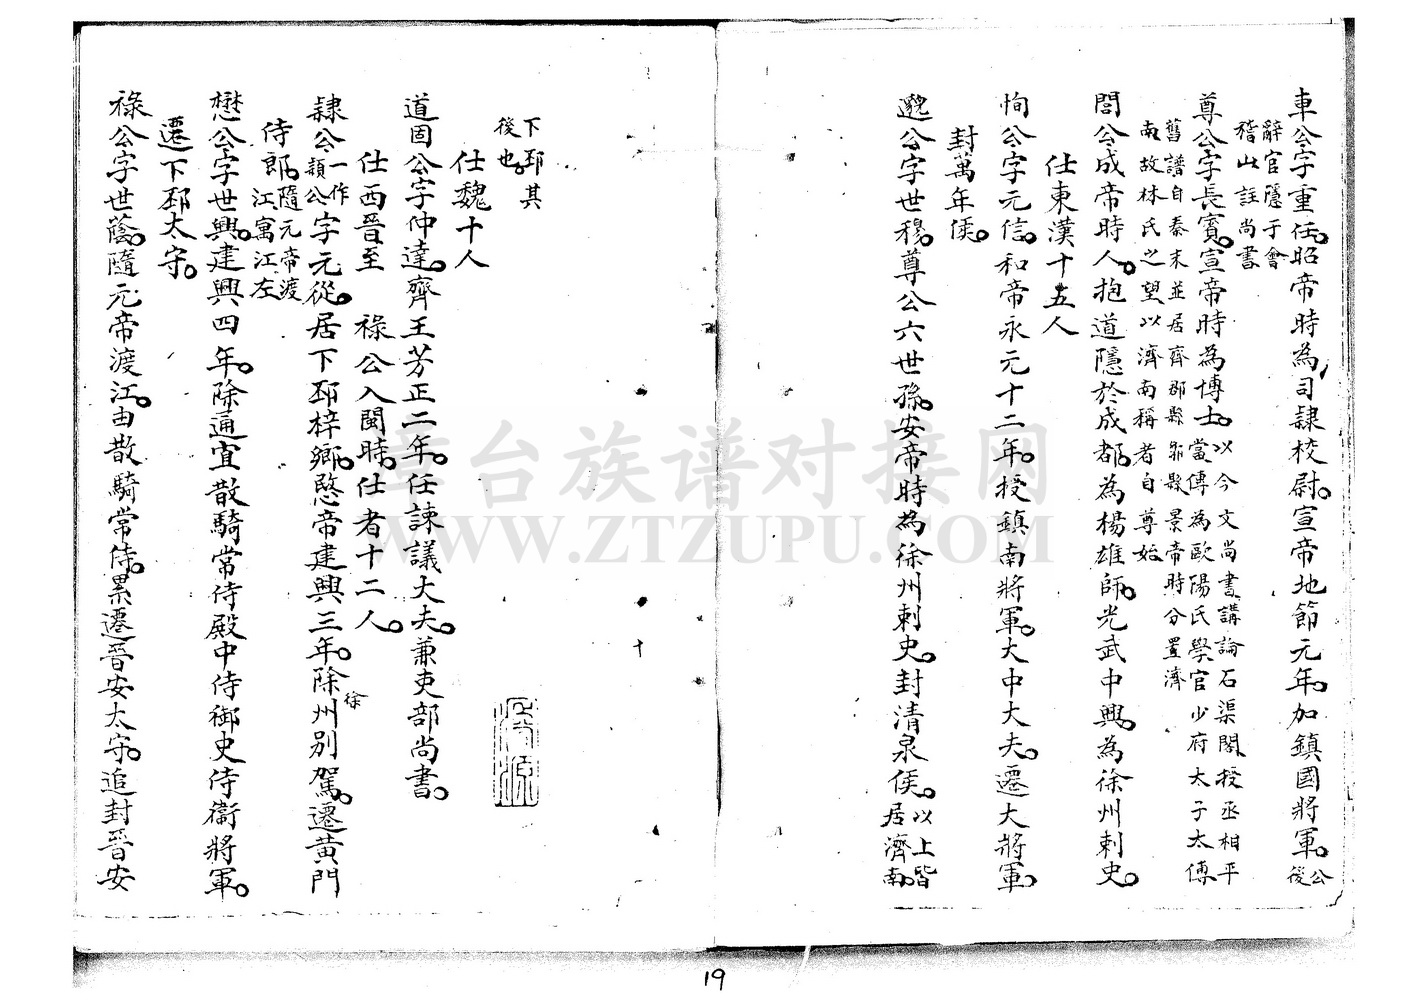 車公字重任。昭帝時為司隸校尉。宣帝地節元年。加鎮國將軍。公後
辭官隱于會
稽山註尚書
尊公字長賓。宣帝時為博士。以今文尚書講論石渠閣。授丞相平
當。傳為歐陽氏學官少府太子太傅
舊譜自秦末並居齊郡縣鄒縣景帝時分置濟
南故林氏之望以濟南稱者自尊始
閭公成帝時人。抱道隱於成都。為楊雄師。光武中興。為徐州刺史。
仕東漢十五人
恂公字元信。和帝永元十二年。授鎮南將軍。大中大夫。遷大將軍。
封萬年侯。
邈公字世穆。尊公六世孫。安帝時為徐州刺史。封清泉侯。以上皆居濟南。
下邳其
後也。
仕魏十人
道固公字仲達。齊王芳正二年。任諫議大夫。兼吏部尚書。
仕西晉至 祿公入閩時。仕者十二人。
隸公一作穎公字元從。居下邳梓鄉。愍帝建興三年。除徐州別駕。遷黃門
侍郎。隨元帝渡江寓江左
懋公字世興。建興四年。除通宜散騎常侍殿中侍御史侍衞將軍。
遷下邳太守。
祿公字世蔭。隨元帝渡江。由散騎常侍。累遷晉安太守。追封晉安
十
19
幸台族谱对接网
WWW.ZTZUPU.COM